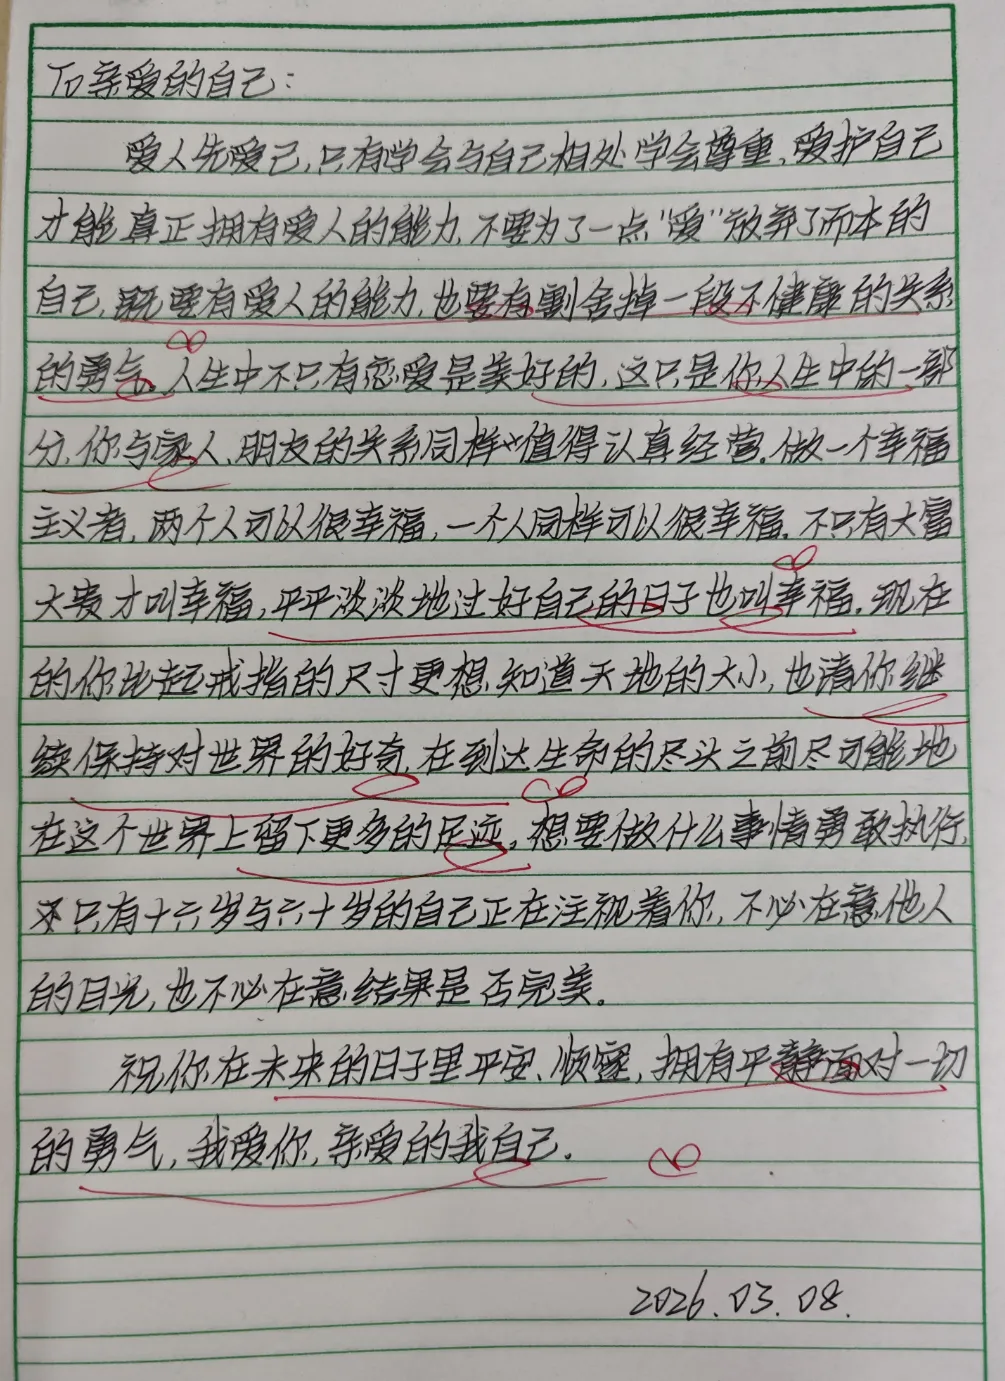 To亲爱的自己:
爱人先爱己,只有学会与自己相处学会尊重、爱护自己
才能真正拥有爱人的能力,不要为了一点“爱”放弃了原本的
自己,既要有爱人的能力,也要有割舍掉一段不健康的关系
的勇气。人生中不只有恋爱是美好的,这只是你人生中的一部
分,你与家人、朋友的关系同样值得认真经营。做一个幸福
主义者,两个人可以很幸福,一个人同样可以很幸福。不只有大富
大贵才叫幸福,平平淡淡地过好自己的日子也叫幸福。现在
的你比起戒指的尺寸更想知道天地的大小,也请你继
续保持对世界的好奇,在到达生命的尽头之前尽可能地
在这个世界上留下更多的足迹。想要做什么事情勇敢执行,
只有十六岁与六十岁的自己正在注视着你,不必在意他人
的目光,也不必在意结果是否完美。
祝你在未来的日子里平安、顺遂,拥有平静面对一切
的勇气,我爱你,亲爱的我自己。
2026.03.08.